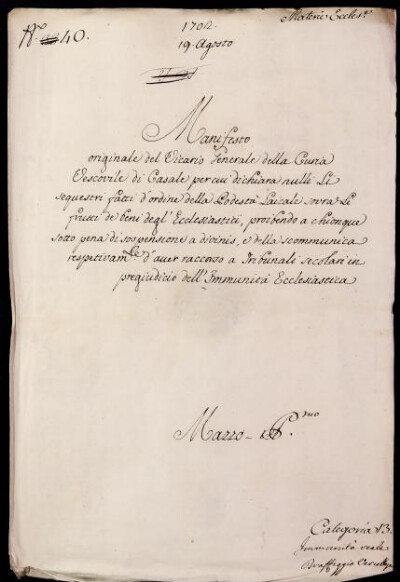 N.º 40.
1702
19. Agosto
Materie Eccles.e
Manifesto
originale del Vicario Generale della Curia
Vescovile di Casale per cui dichiara nulli Li
sequestri fatti d'ordine della Podestà Laicale sovra Le
frutti de beni degl'Ecclesiastici, proibendo a chionque
sotto pena di sospensione a divinis, e della scommunica
respetivam.te d'aver raccorso a Tribunali secolari in
pregiudicio dell'Immunità Ecclesiastica
Mazzo P.mo
Categoria 13.
Immunità reale